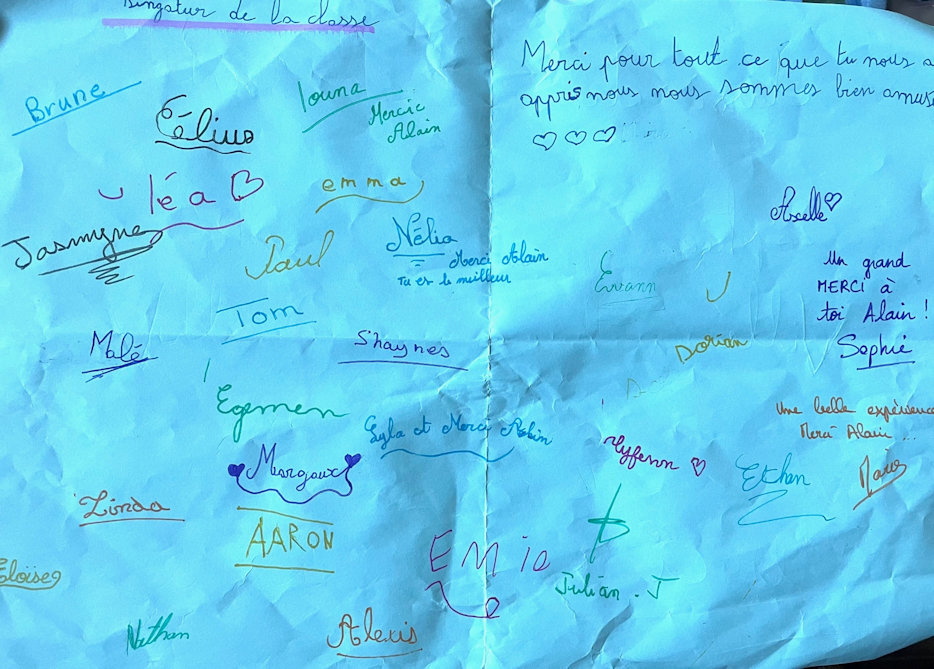 de la classe
Merci pour tout ce que tu nous a
appris nous nous sommes bien amus
Brune
louna
Mercie
Alain
léa
emma
Axelle
Jasmyne
Paul
Nélia
Merci Alain
Tu es le meilleur
Erwann
Un grand
MERCI à
toi Alain !
Sophie
Tom
Malé
Shaynes
Dorian
Egemen
Une belle expérience
Merci Alain...
Lyla et Merci
Margaux
Ethan
Linda
AARON
EMie
Julian. J
Eloïse
Nathan
Alexis